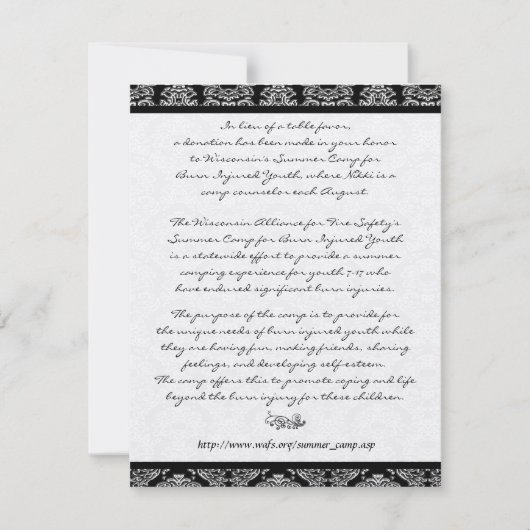 In lieu of a table favor,
a donation has been made in your honor
to Wisconsin's Summer Camp for
Burn Injured Youth, where Nikki is a
camp counselor each August.
The Wisconsin Alliance for Fire Safety's
Summer Camp for Burn Injured Youth
is a statewide effort to provide a summer
camping experience for youth 7-17 who
have endured significant burn injuries.
The purpose of the camp is to provide for
the unique needs of burn injured youth while
they are having fun, making friends, sharing
feelings, and developing self-esteem.
The camp offers this to promote coping and life
beyond the burn injury for these children.
http://www.wafs.org/summer_camp.asp